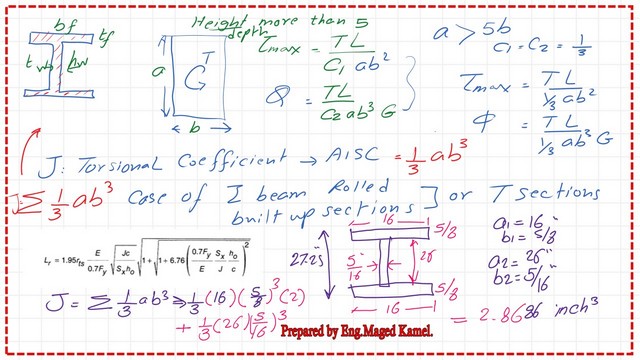 Height more than 5
depth
bf
tf
tw
hw
a
G
T
b
τmax = TL / C1 ab²
Q = TL / C2 ab³ G
a > 5b
C1 = C2 = 1/3
τmax = TL / 1/3 ab²
Φ = TL / 1/3 ab³ G
J: Torsional Coefficient → AISC = 1/3 ab³
= Σ 1/3 ab³ Case of I beam Rolled
built up sections ] or T sections
Lr = 1.95rts E/0.7Fy √(Jc/Sxho) √(1+√(1+6.76(0.7Fy/E Sx/J ho/c)²))
27.25"
16
5/8
5/16
26
16
5/8
a1 = 16"
b1 = 5/8
a2 = 26"
b2 = 5/16"
J = Σ 1/3 ab³ ⇒ 1/3 (16)(5/8)³(2)
+ 1/3 (26)(5/16)³
= 2.8686 inch³
Prepared by Eng.Maged Kamel.